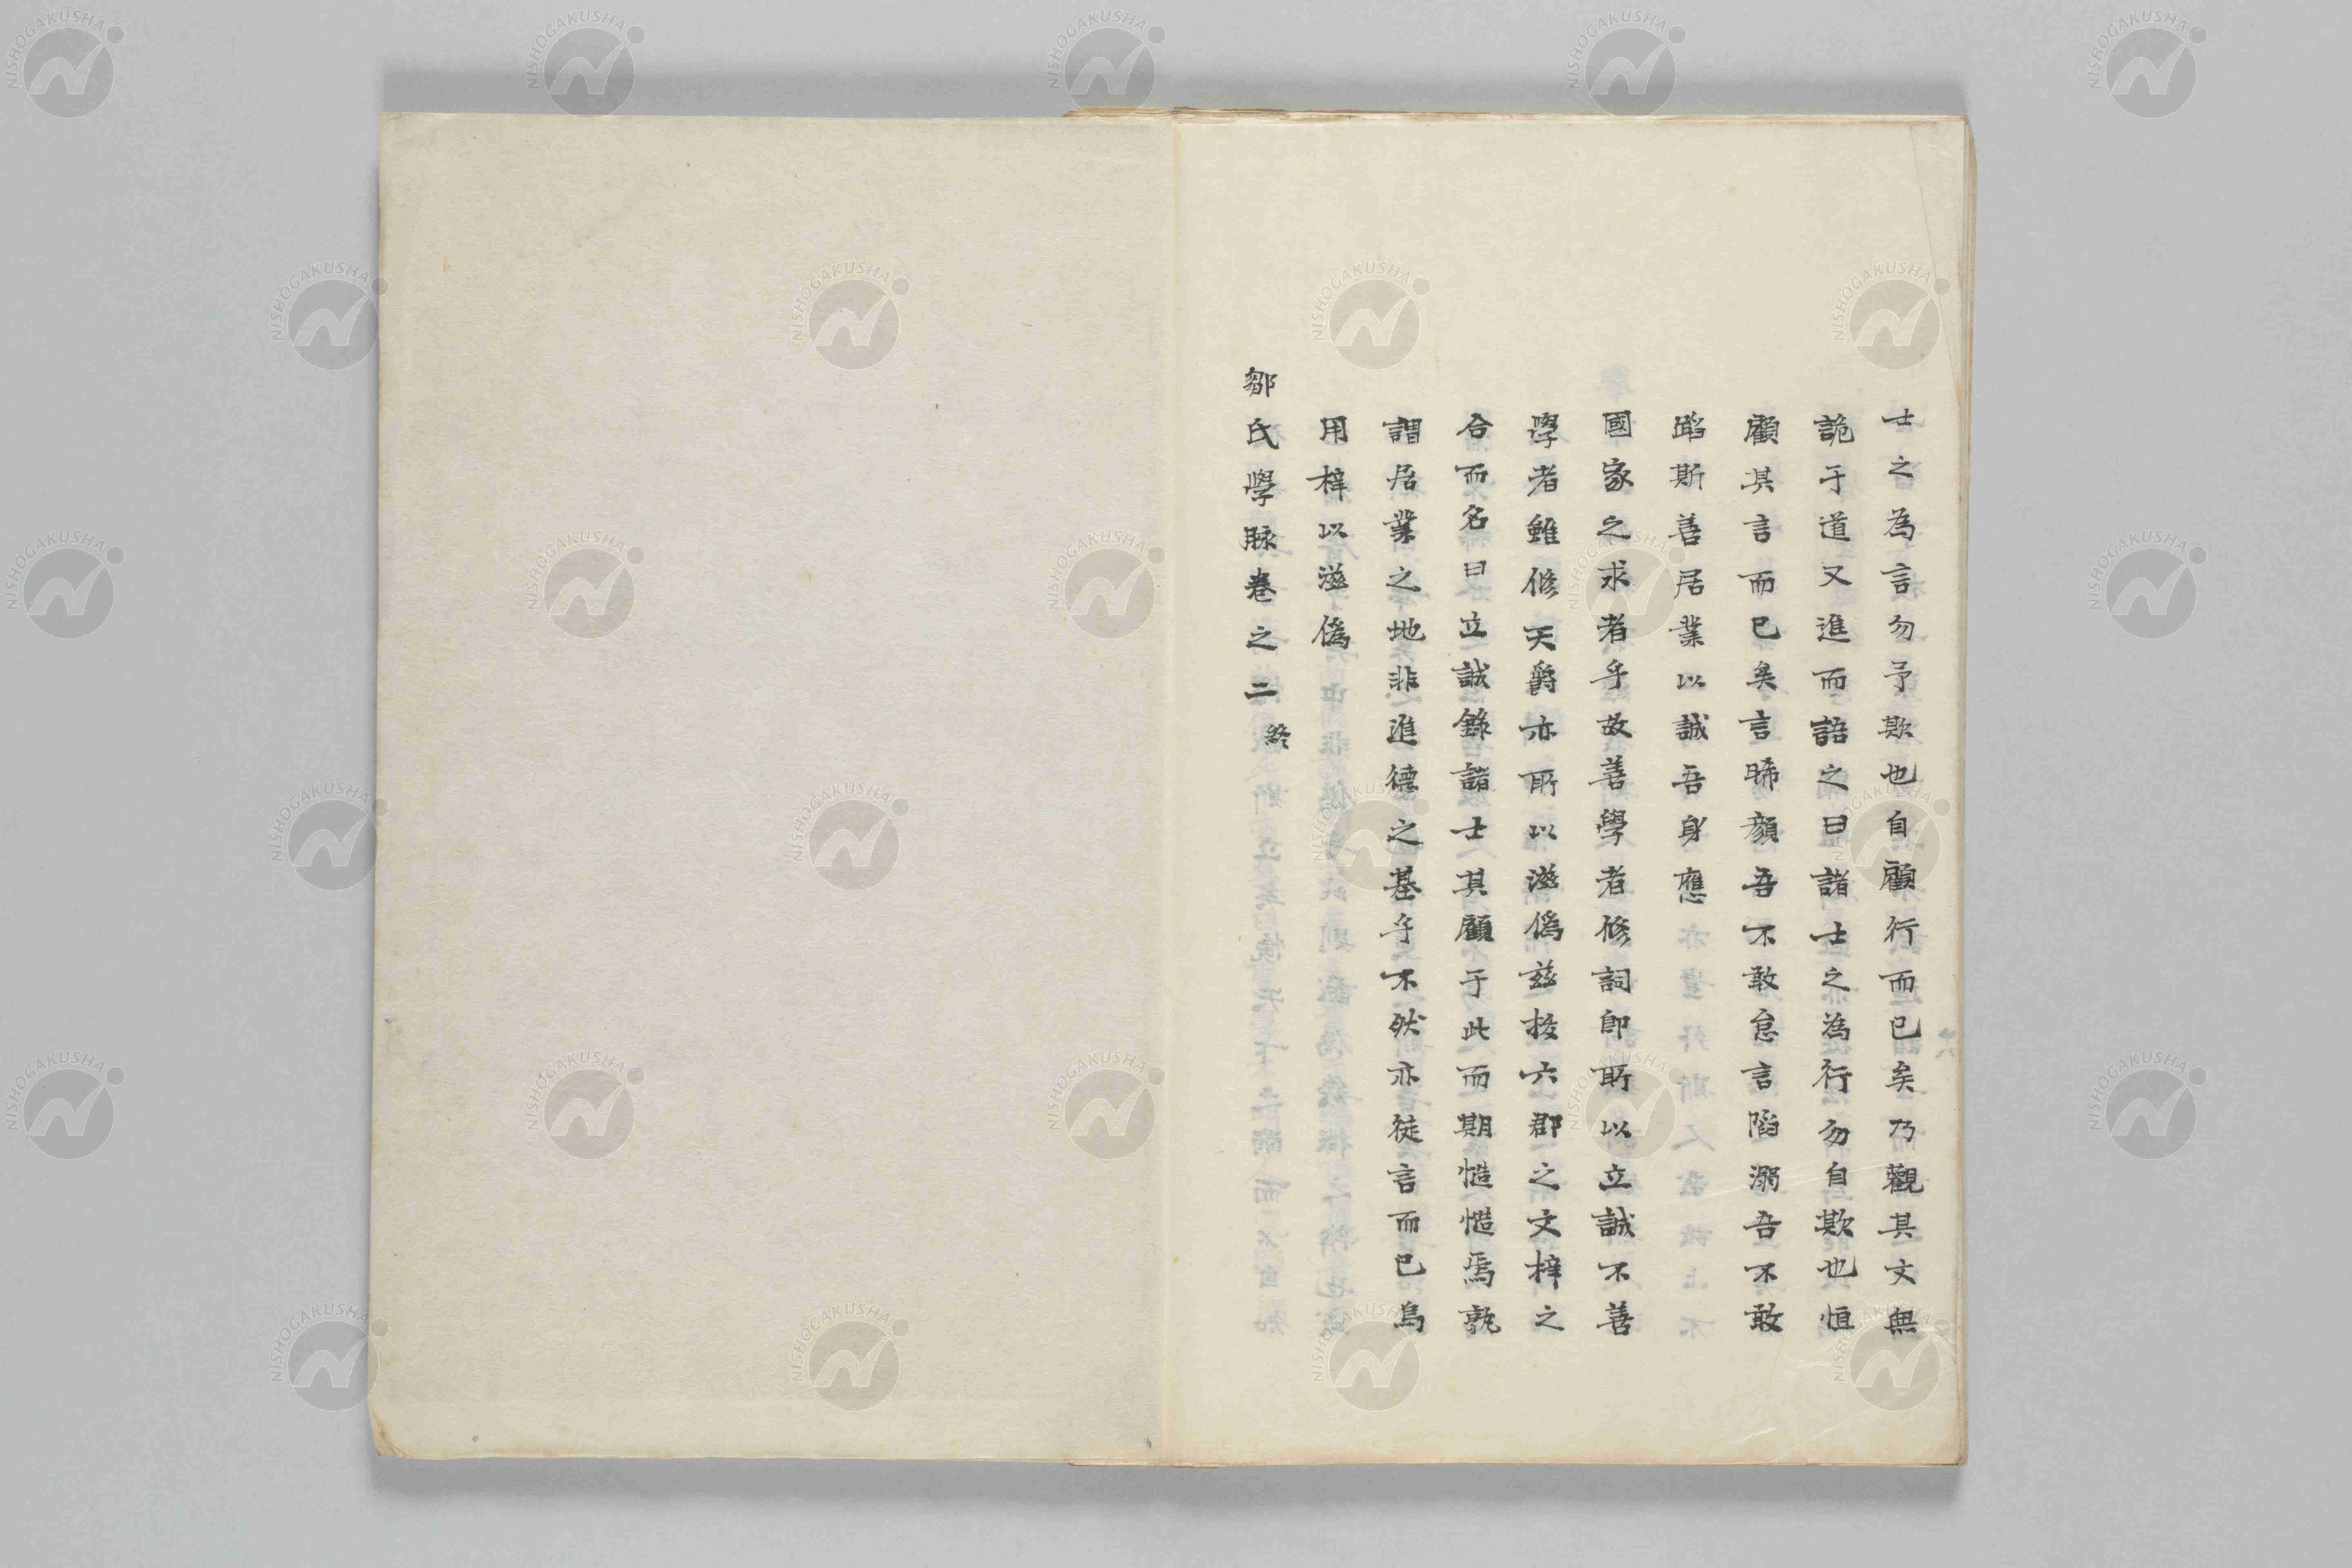 士之為言勿予欺也自顧行而已矣乃觀其文無
詭于道又進而語之曰諸士之為行勿自欺也恒
顧其言而已矣言睎顔吾不敢怠言陷溺吾不敢
蹈斯善居業以誠吾身應
國家之求者乎故善學者修詞即所以立誠不善
學者雖修天爵亦所以滋偽兹校六郡之文梓之
合而名曰立誠錄諸士其顧于此而期慥慥焉孰
謂居業之地非進德之基乎不然亦徒言而已烏
用梓以滋偽
鄒氏學脉卷之二終
NISHOGAKUSHA